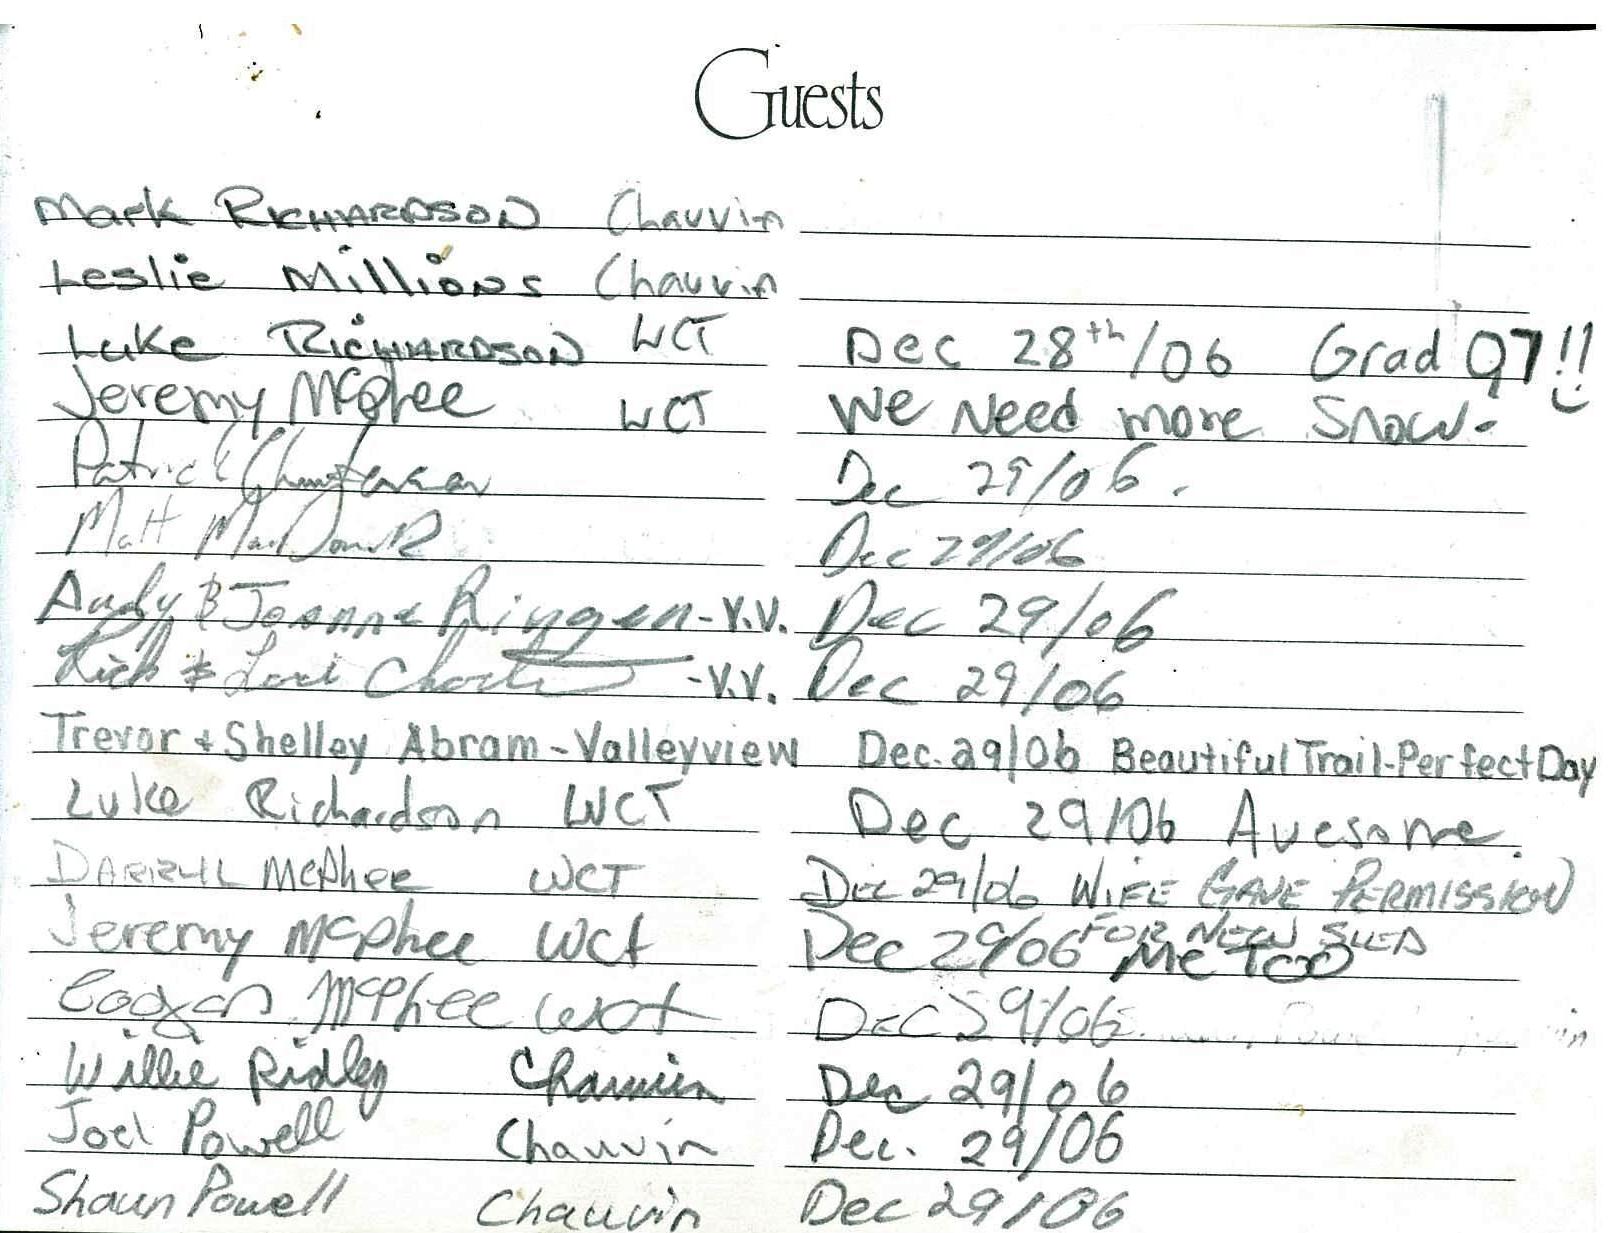 Guests
Mark RICHARDSON Chauvin
Leslie Millions Chauvin
Luke RICHARDSON WCT Dec 28th/06 Grad 07!!
Jeremy McPhee WCT We Need more Snow.
Patrick Dec 29/06.
Matt MacDonald Dec 29/06
Andy & Joanne Ringen - V.V. Dec 29/06
Rick & Lori - V.V. Dec 29/06
Trevor + Shelley Abram - Valleyview Dec. 29/06 Beautiful Trail-Perfect Day
Luke Richardson WCT Dec 29/06 Avesome.
DARRYL McPhee WCT Dec 29/06 WIFE GAVE PERMISSION
FOR NEW SLED
Jeremy McPhee WCT Dec 29/06 Me Too
McPhee WCT DEC 29/06
Willie Ridley Chauvin Dec 29/06
Joel Powell Chauvin Dec. 29/06
Shaun Powell Chauvin Dec 29/06